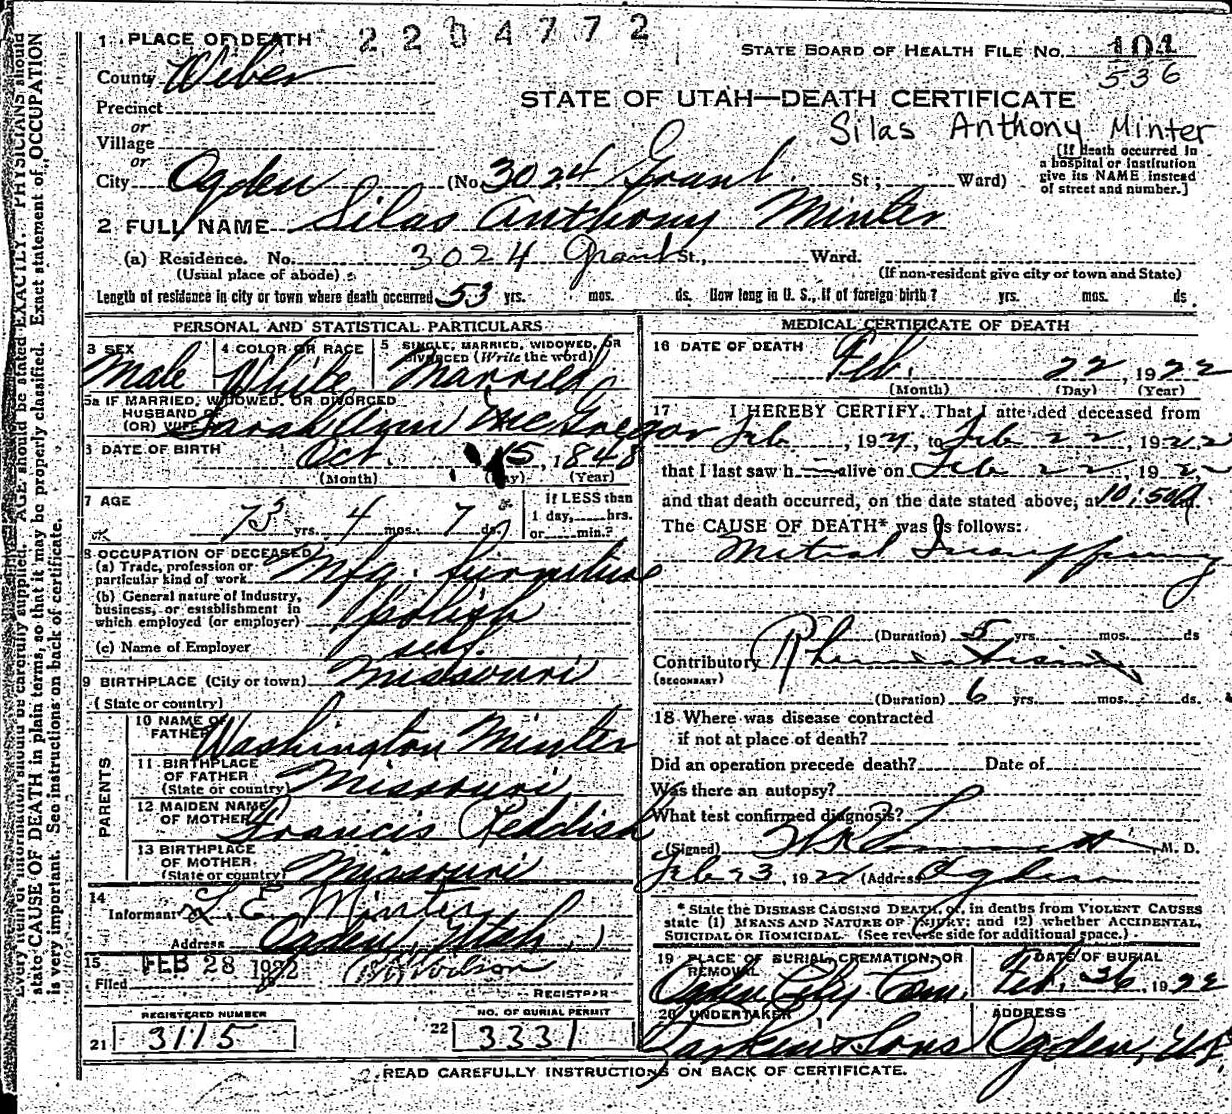 2204772
1 PLACE OF DEATH
STATE BOARD OF HEALTH FILE NO. 101
536
County Weber
Precinct
STATE OF UTAH—DEATH CERTIFICATE
or
Village
Silas Anthony Minter
or
City Ogden (No. 3024 Grant St; Ward)
[If death occurred in
a hospital or institution
give its NAME instead
of street and number.]
2 FULL NAME Silas Anthony Minter
(a) Residence. No. 3024 Grant St., Ward.
(Usual place of abode)
(If non-resident give city or town and State)
Length of residence in city or town where death occurred 53 yrs. mos. ds. How long in U. S., if of foreign birth? yrs. mos. ds.
PERSONAL AND STATISTICAL PARTICULARS
3 SEX
Male
4 COLOR OR RACE
White
5 SINGLE, MARRIED, WIDOWED, OR
DIVORCED (Write the word)
Married
5a IF MARRIED, WIDOWED, OR DIVORCED
HUSBAND OF
(OR) WIFE Sarah Ann McGregor
6 DATE OF BIRTH Oct. 15, 1848
(Month) (Day) (Year)
7 AGE
73 yrs. 4 mos. 7 ds.
If LESS than
1 day, hrs.
or min.?
8 OCCUPATION OF DECEASED
(a) Trade, profession or
particular kind of work Mfg. furniture
(b) General nature of Industry,
business, or establishment in
which employed (or employer) Polish
(c) Name of Employer self.
9 BIRTHPLACE (City or town) Missouri
(State or country)
PARENTS
10 NAME OF
FATHER Washington Minter
11 BIRTHPLACE
OF FATHER
(State or country) Missouri
12 MAIDEN NAME
OF MOTHER Francis Reddish
13 BIRTHPLACE
OF MOTHER.
(State or country) Missouri
14
Informant L. E. Minter
Address Ogden, Utah.
15
Filed FEB 28 1922
REGISTRAR
REGISTERED NUMBER
21 3115
NO. OF BURIAL PERMIT
22 3331
MEDICAL CERTIFICATE OF DEATH
16 DATE OF DEATH
Feb. 22, 1922
(Month) (Day) (Year)
17 I HEREBY CERTIFY. That I attended deceased from
Feb , 192 , to Feb 22, 1922
that I last saw h alive on Feb 22 1922
and that death occurred, on the date stated above, at 10:50
The CAUSE OF DEATH* was as follows:
Mitral Insufficiency
(Duration) 5 yrs. mos. ds
Contributory Rheumatism
(SECONDARY)
(Duration) 6 yrs. mos. ds.
18 Where was disease contracted
if not at place of death?
Did an operation precede death? Date of
Was there an autopsy?
What test confirmed diagnosis?
(Signed) M. D.
Feb 23, 1922 (Address Ogden
* State the DISEASE CAUSING DEATH, or, in deaths from VIOLENT CAUSES
state (1) MEANS AND NATURE OF INJURY; and (2) whether ACCIDENTAL,
SUICIDAL OR HOMICIDAL. (See reverse side for additional space.)
19 PLACE OF BURIAL, CREMATION, OR
REMOVAL
Ogden City Cem.
DATE OF BURIAL
Feb. 26, 1922
20 UNDERTAKER
Larkin & Sons
ADDRESS
Ogden, Ut.
READ CAREFULLY INSTRUCTIONS ON BACK OF CERTIFICATE.
Every item of information should be carefully supplied. AGE should be stated EXACTLY. PHYSICIANS should
state CAUSE OF DEATH in plain terms, so that it may be properly classified. Exact statement of OCCUPATION
is very important. See instructions on back of certificate.